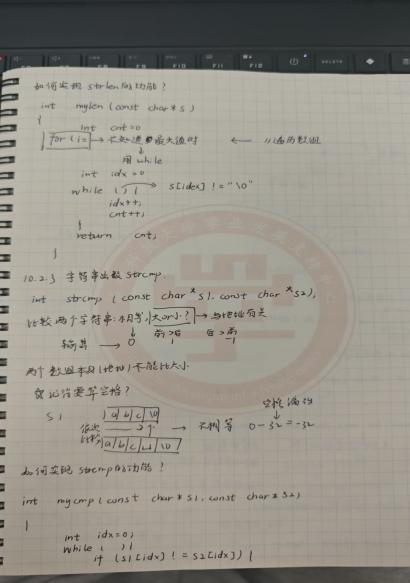 F10
F11
F12
DELETE
如何实现 strlen 的功能?
int mylen (const char* s)
{
int cnt=0
for (i= → 不知道最大值时 ← //遍历数组
↓
用 while
int idx=0
while ( ) { → s[idex] != "\0"
idx++;
cnt++;
}
return cnt;
}
10.2.3 字符串函数 strcmp.
int strcmp (const char *s1, const char *s2),
比较两个字符串:相等,大or小? → 与地址有关
输出 → 0 前>后 1 后>前 -1
两个数组本身(地址)不能比大小
空格
s1 |a|b|c|\0|
依次比较 → 不相等 0-32=-32
|a|b|c|␣|\0|
如何实现 strcmp 的功能?
int mycmp (const char *s1, const char *s2)
{
int idx=0;
while ( ) {
if (s1[idx] != s2[idx]) {